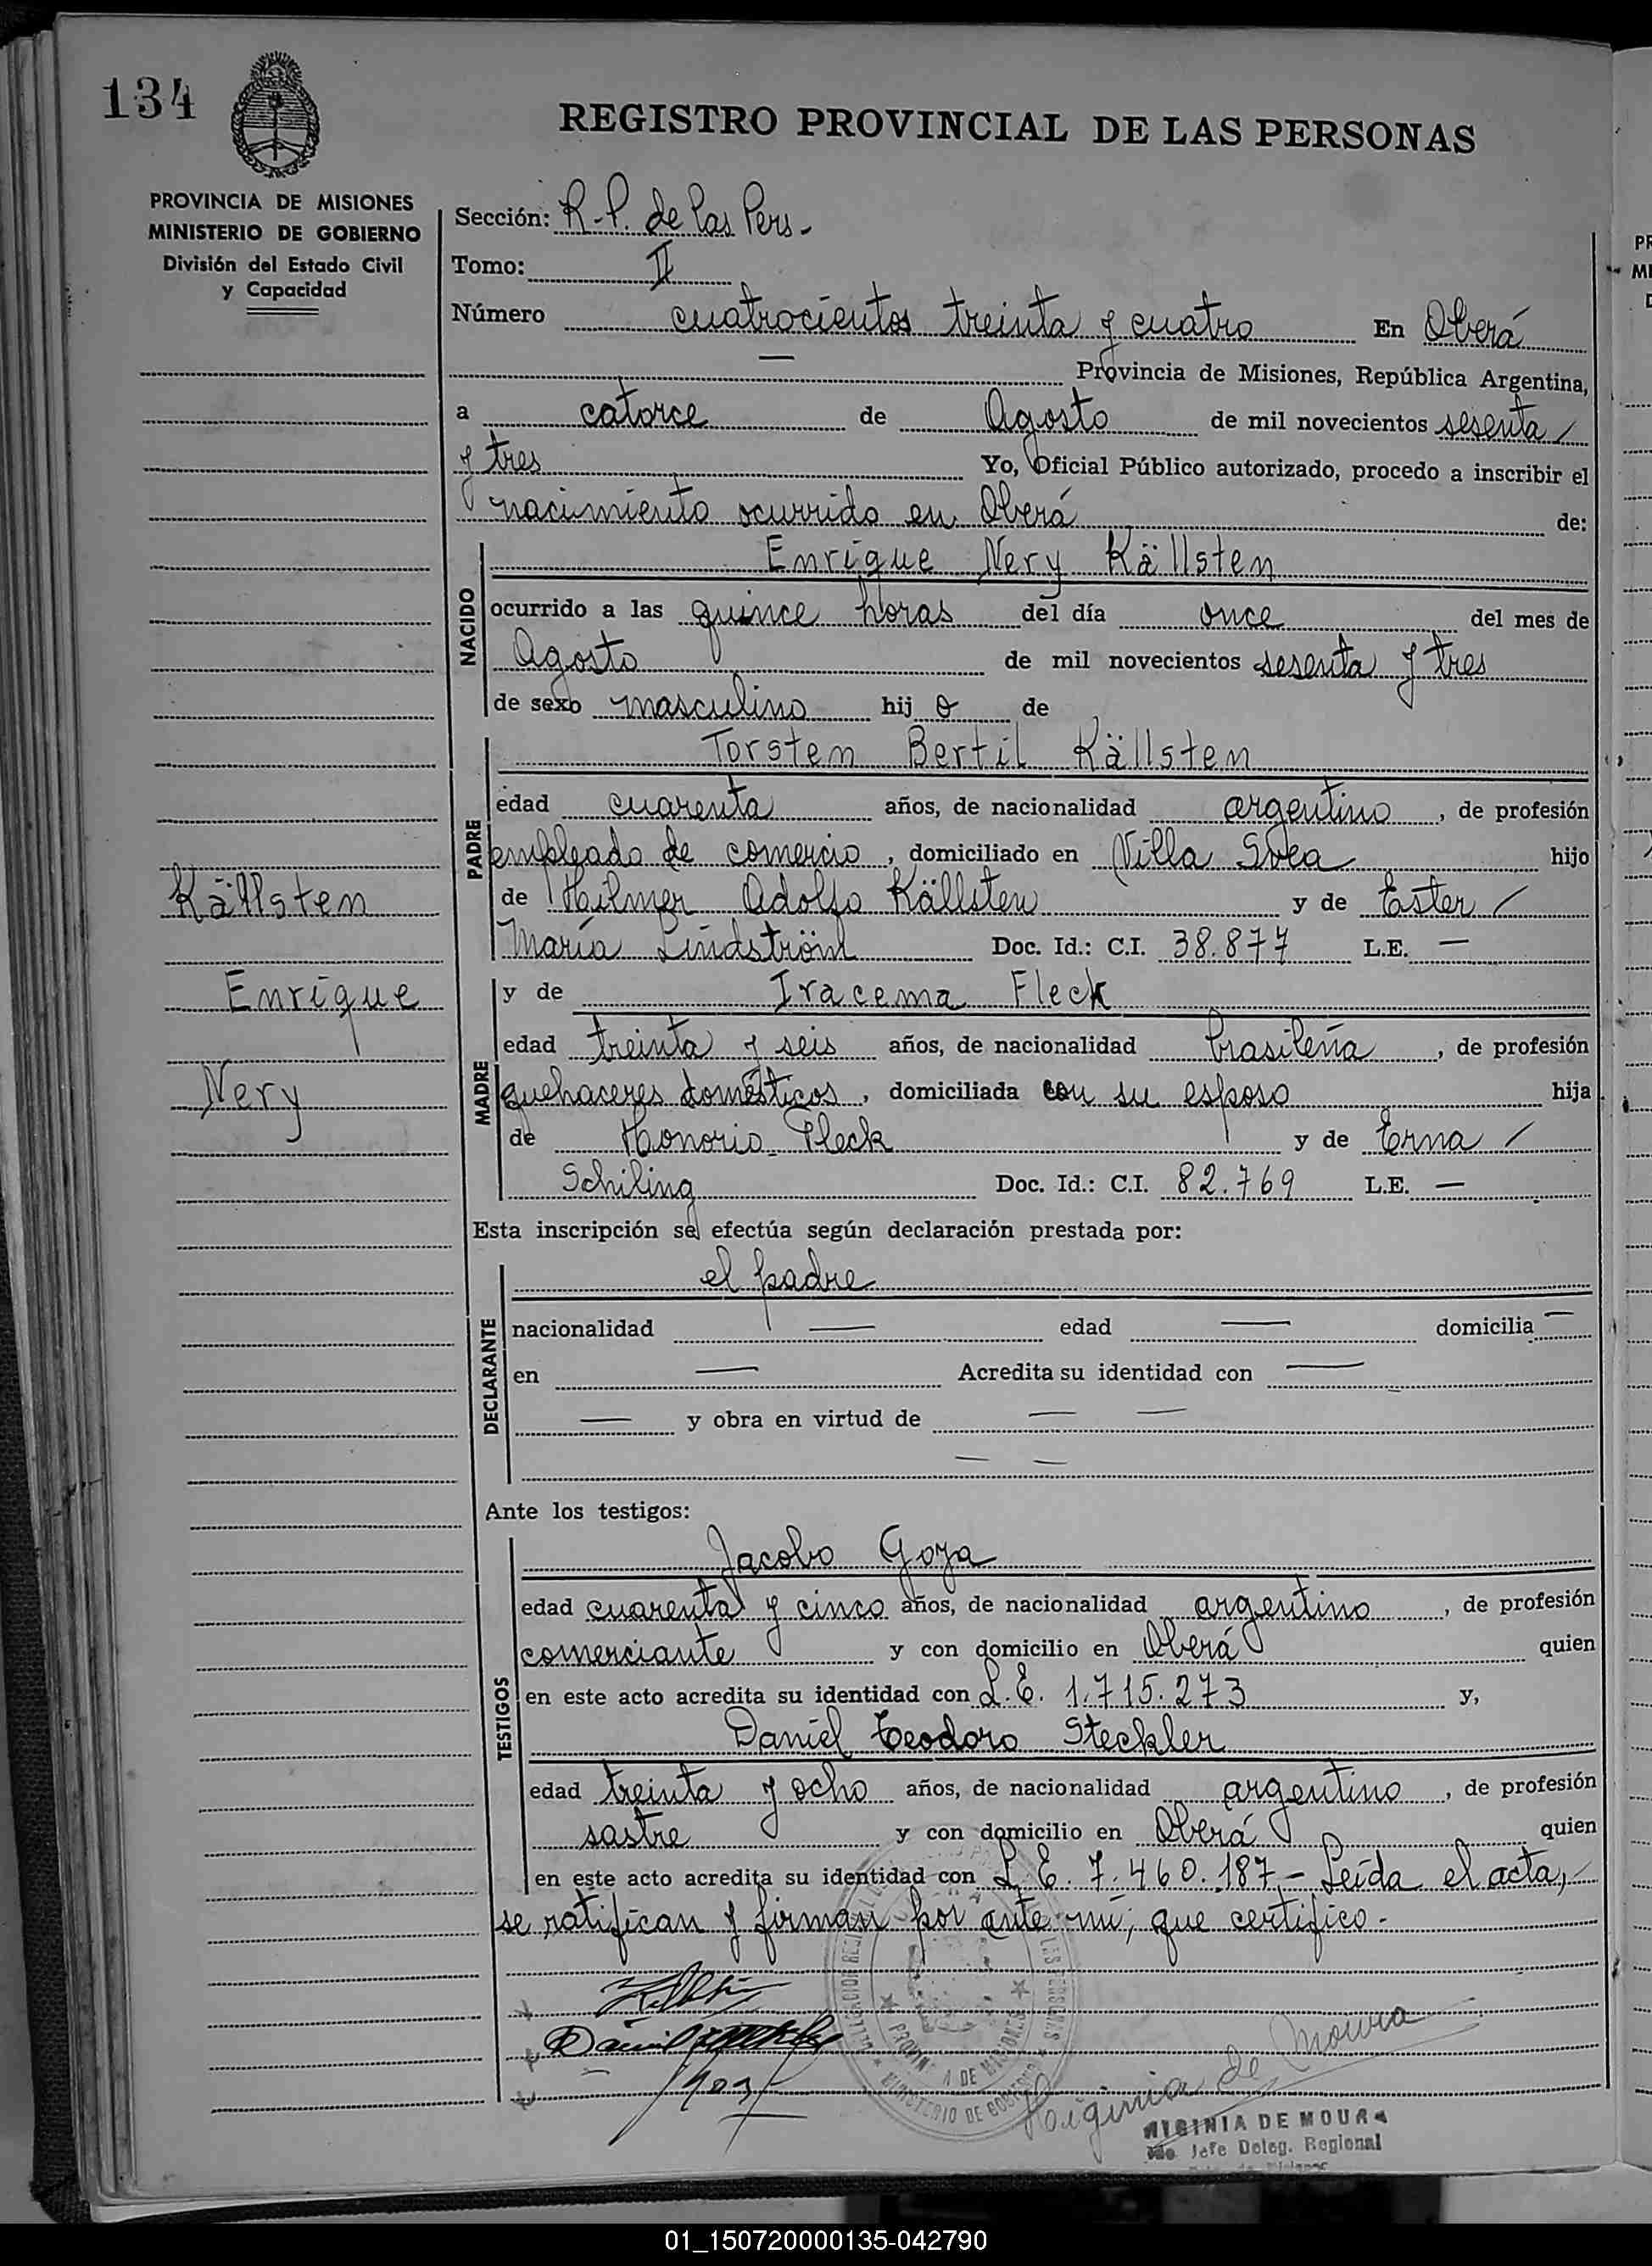 134
REGISTRO PROVINCIAL DE LAS PERSONAS
PROVINCIA DE MISIONES
MINISTERIO DE GOBIERNO
División del Estado Civil
y Capacidad
Sección: R.P. de las Pers.
Tomo: II
Número cuatrocientos treinta y cuatro En Oberá
— Provincia de Misiones, República Argentina,
a catorce de Agosto de mil novecientos sesenta /
y tres Yo, Oficial Público autorizado, procedo a inscribir el
nacimiento ocurrido en Oberá de:
NACIDO
Enrique Nery Källsten
ocurrido a las quince horas del día once del mes de
Agosto de mil novecientos sesenta y tres
de sexo masculino hij o de
PADRE
Torsten Bertil Källsten
edad cuarenta años, de nacionalidad argentino, de profesión
empleado de comercio, domiciliado en Villa Svea hijo
Källsten
de Hilmer Adolfo Källsten y de Ester /
María Lindström Doc. Id.: C.I. 38.877 L.E. —
Enrique
MADRE
y de Iracema Fleck
edad treinta y seis años, de nacionalidad brasileña, de profesión
Nery
quehaceres domésticos, domiciliada con su esposo hija
de Honorio Fleck y de Erna /
Schiling Doc. Id.: C.I. 82.769 L.E. —
Esta inscripción se efectúa según declaración prestada por:
DECLARANTE
el padre
nacionalidad — edad — domicilia —
en — Acredita su identidad con —
— y obra en virtud de — —
— —
Ante los testigos:
TESTIGOS
Jacobo Goya
edad cuarenta y cinco años, de nacionalidad argentino, de profesión
comerciante y con domicilio en Oberá quien
en este acto acredita su identidad con L.E. 1.715.273 y,
Daniel Teodoro Steckler
edad treinta y ocho años, de nacionalidad argentino, de profesión
sastre y con domicilio en Oberá quien
en este acto acredita su identidad con L.E. 7.460.187 - Leída el acta,
se ratifican y firman por ante mí, que certifico.
Higinia de Moura
HIGINIA DE MOURA
Jefe Deleg. Regional
01_150720000135-042790